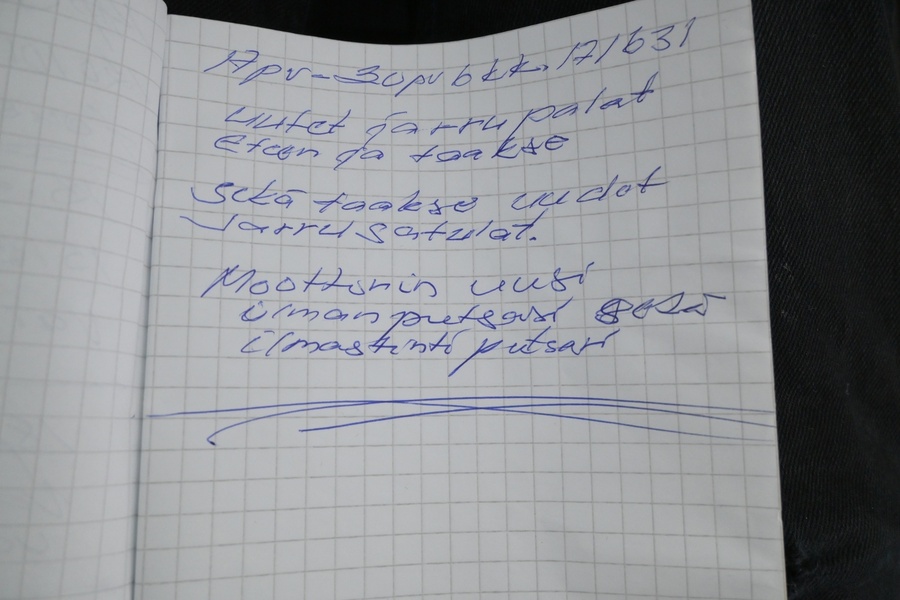 17pv-30pv 6kk. 171631
uutet jarru palat
eteen ja taakse
sekä taakse uudet
Jarru satulat.
Moottorin uusi
ilman putsari sekä
ilmastinti putsari